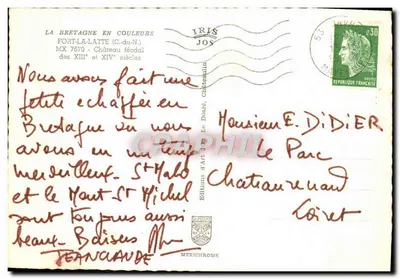 LA BRETAGNE EN COULEURS
FORT-LA-LATTE (C.-du-N.)
MX 7670 - Château féodal
des XIIIe et XIVe siècles
IRIS
JOS
53
0,30
REPUBLIQUE FRANÇAISE
Nous avons fait une
petite échappée en
Bretagne où nous
avons eu un temps
merveilleux - St Malo
et le Mont-St Michel
sont toujours aussi
beaux - Baisers
JEANCLAUDE
Editions d'Art Le Doaré, Châteaulin
Monsieur E. DIDIER
Le Parc
Chateaurenard
Loiret
MEXICHROME